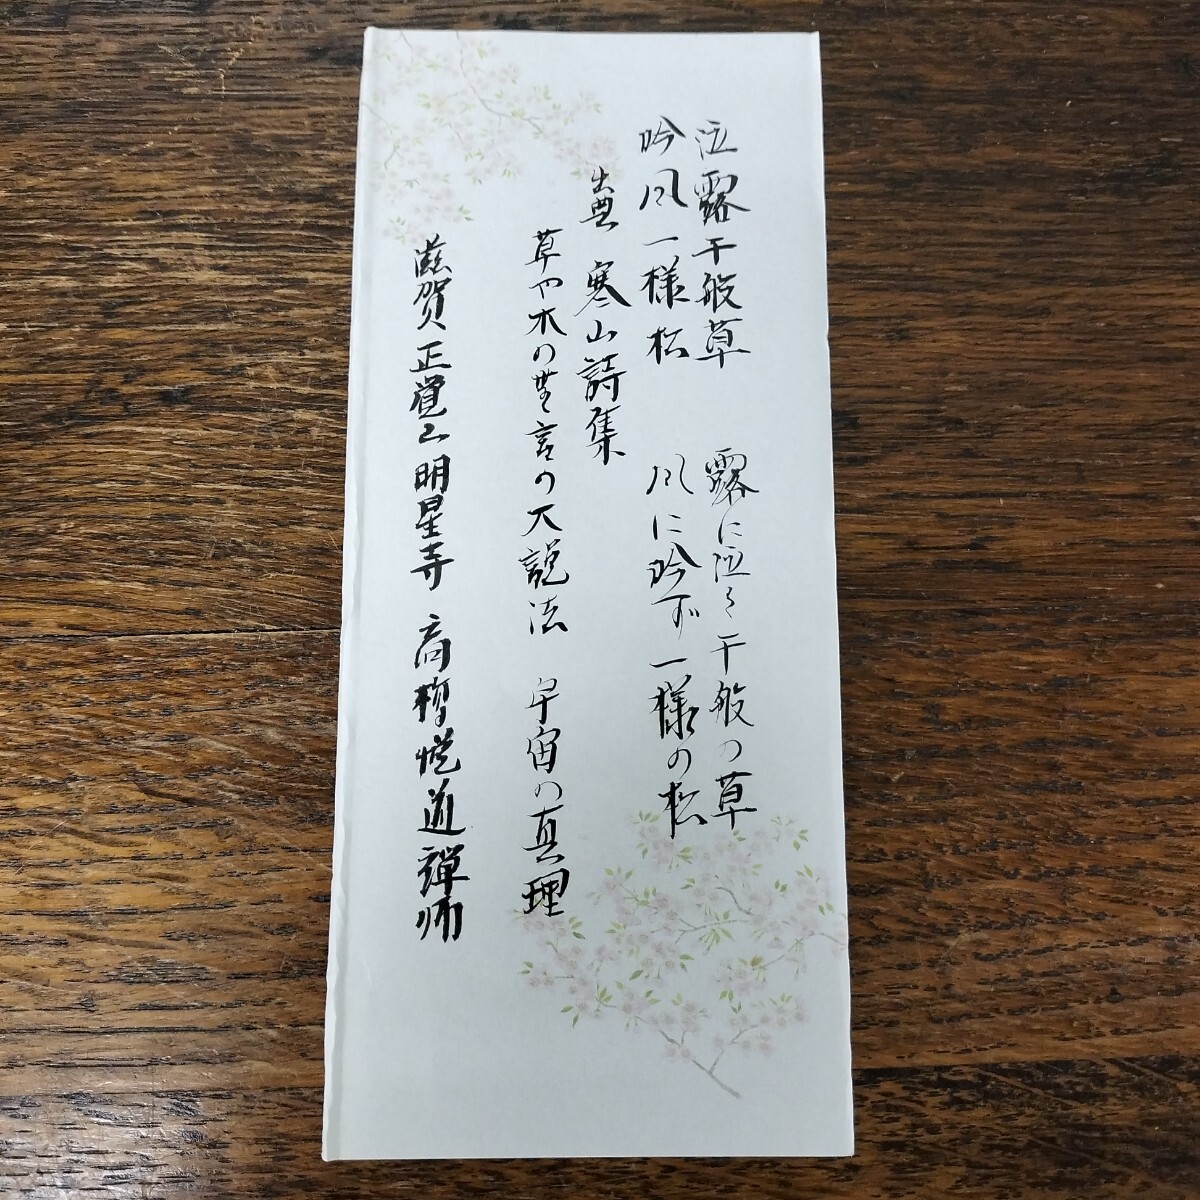 泣露千般草　露に泣く千般の草
吟風一様松　風に吟ず一様の松
出典　寒山詩集
草や木の無言の大説法　宇宙の真理
滋賀正覚山明星寺　高橋悦道禅師